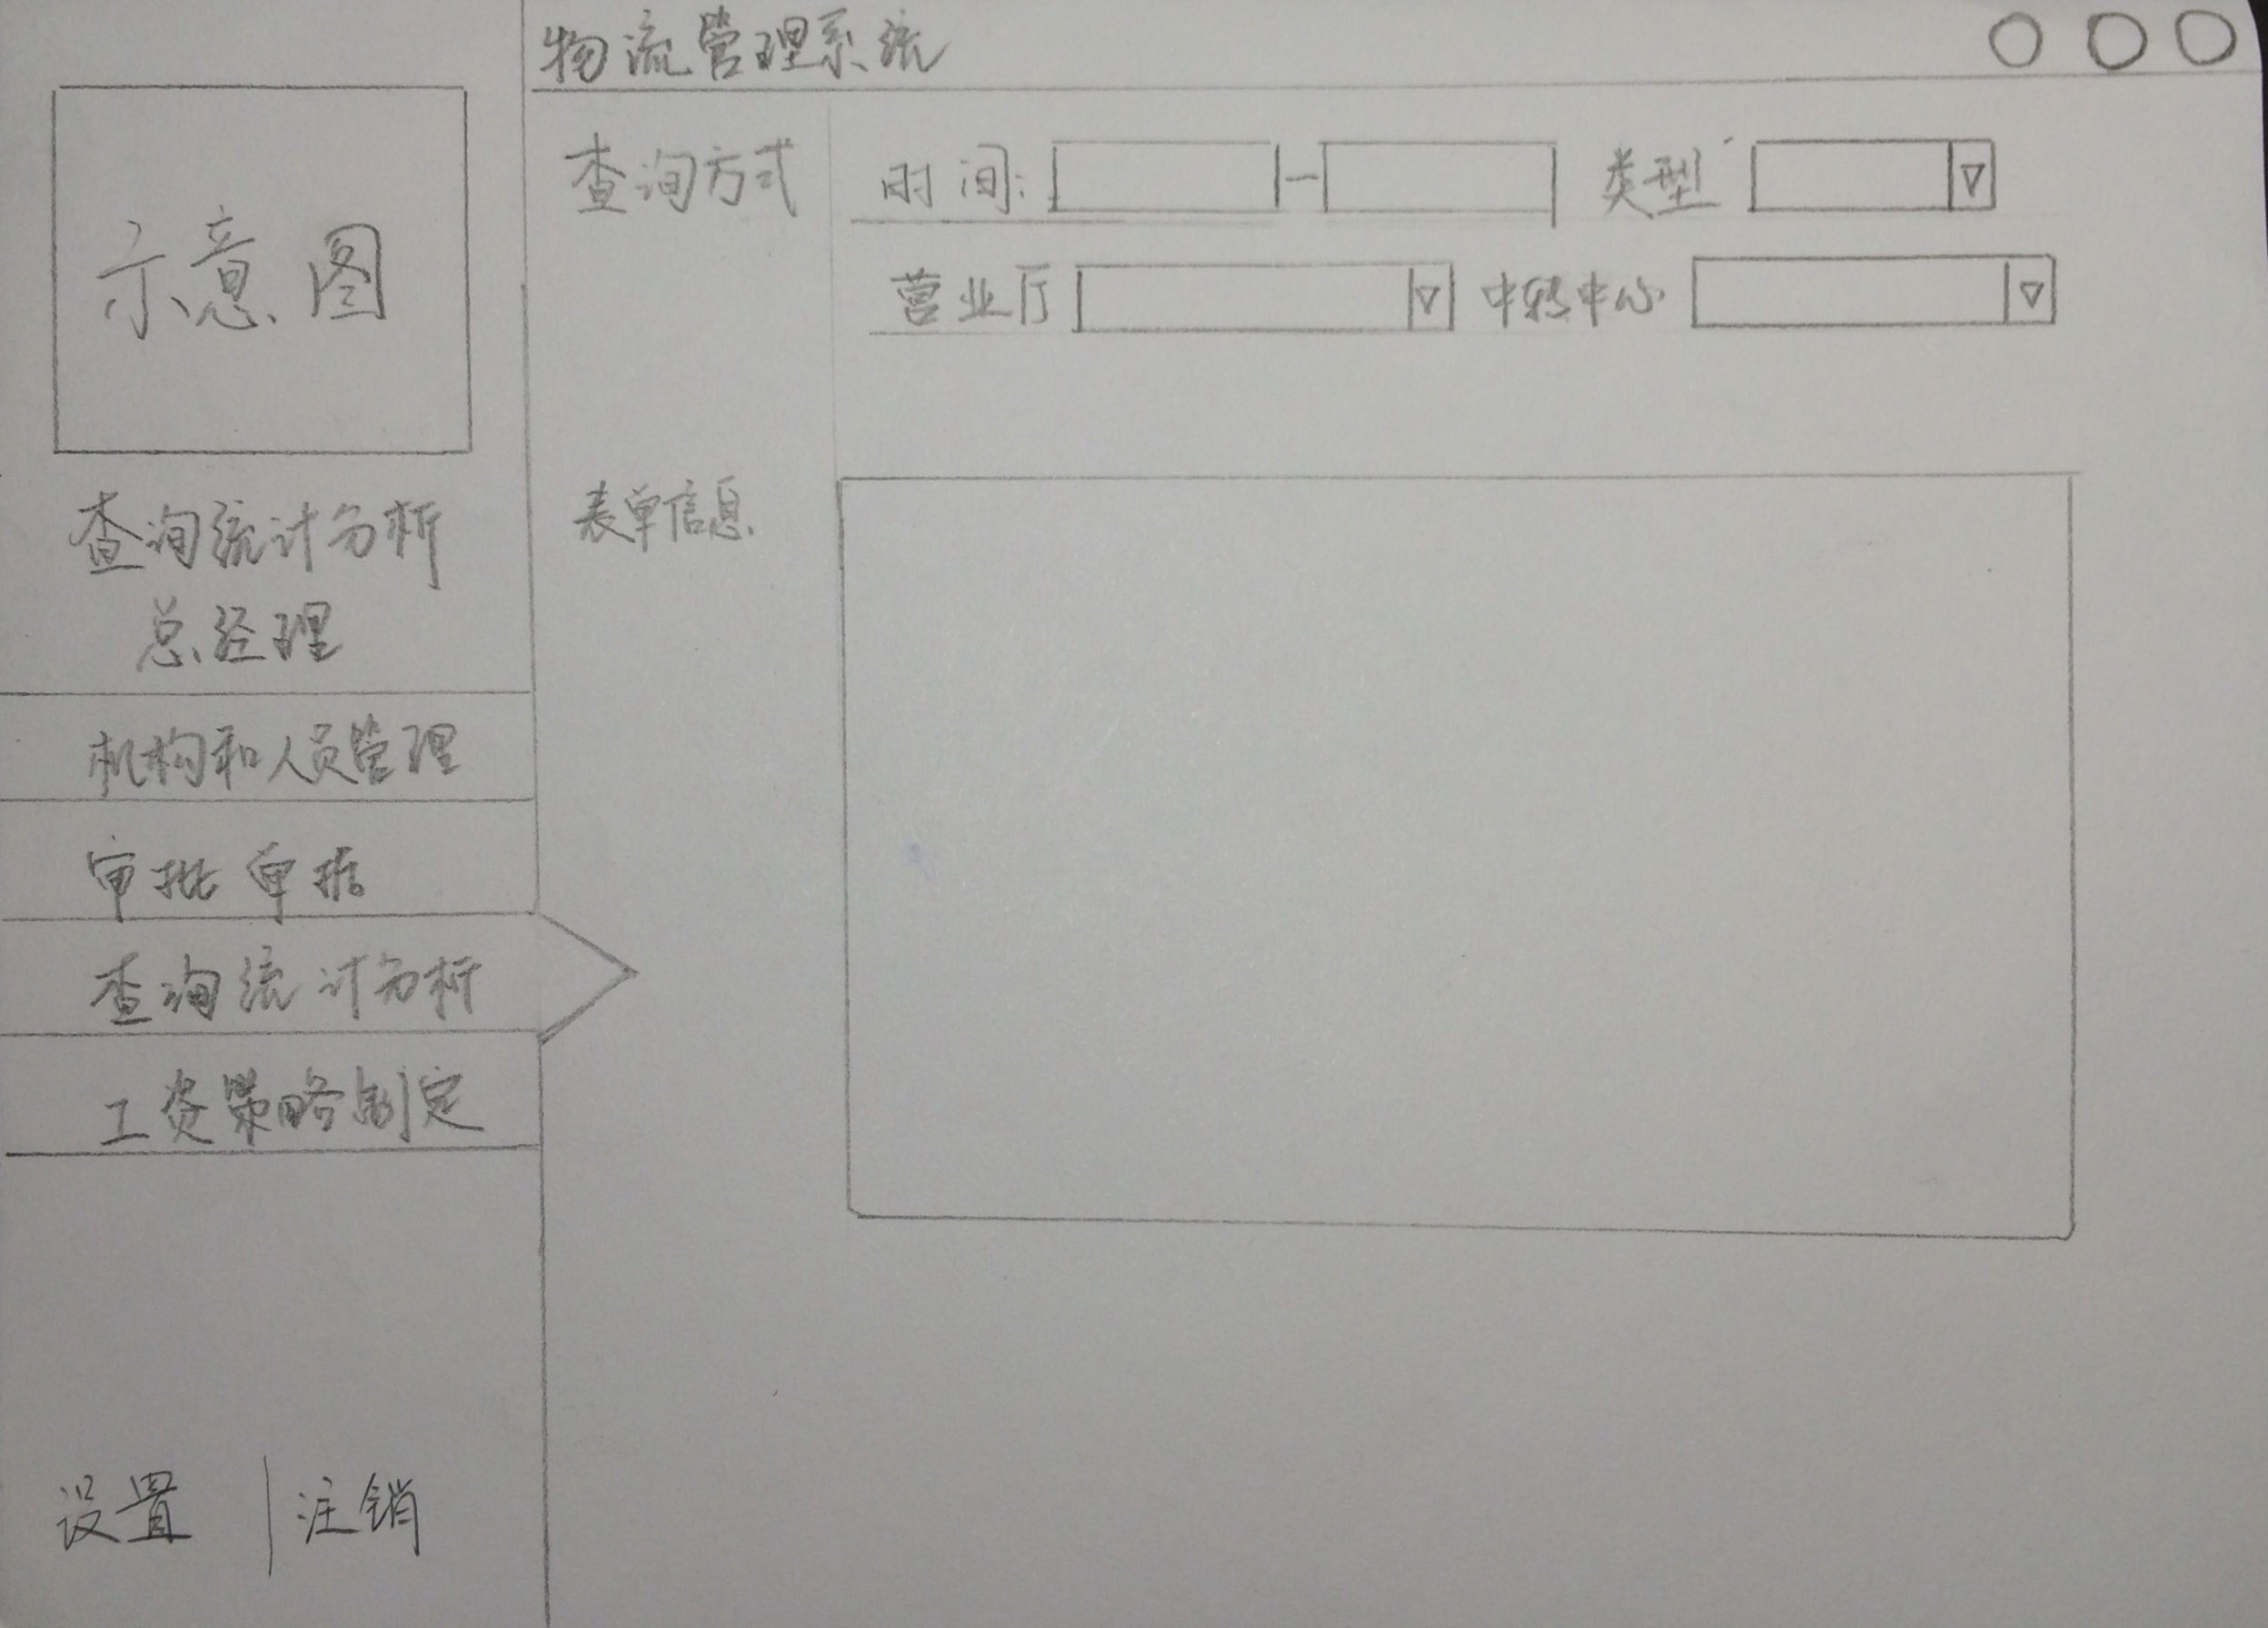 物流管理系统
示意图
查询统计分析
总经理
机构和人员管理
审批单据
查询统计分析
工资策略制定
设置 | 注销
查询方式
时间: - 类型
营业厅 中转中心
表单信息